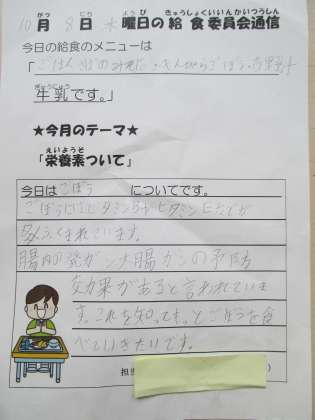 10月8日水曜日の給食委員会通信
がつ にち よう び きゅうしょくいいんかいつうしん
今日の給食のメニューは
「ごはん
ぎゅうにゅう
牛乳です。」
★今月のテーマ★
えいようそ
「栄養素ついて」
今日はごぼうについてです。
ごぼうにはビタミン ビタミンEなどが
多くふくまれています。
腸内の発ガン 大腸ガンの予防
効果があると言われていま
す。これを知っても、ごぼうを食
べていきたいです。
担当